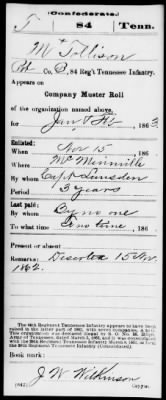 (Confederate)
T 84 Tenn.
M Tollison
Pvt, Co. D, 84 Reg't Tennessee Infantry.
Appears on
Company Muster Roll
of the organization named above,
for Jan & Feb, 1863
Enlisted:
When Nov 15, 186
Where McMinnville
By whom Capt Lumsden
Period 3 years
Last paid:
By whom By no one
To what time no time, 186
Present or absent
Remarks: Deserted 15 Nov.
1862.
Book mark:
J W Wilkinson
(642) Copyist.